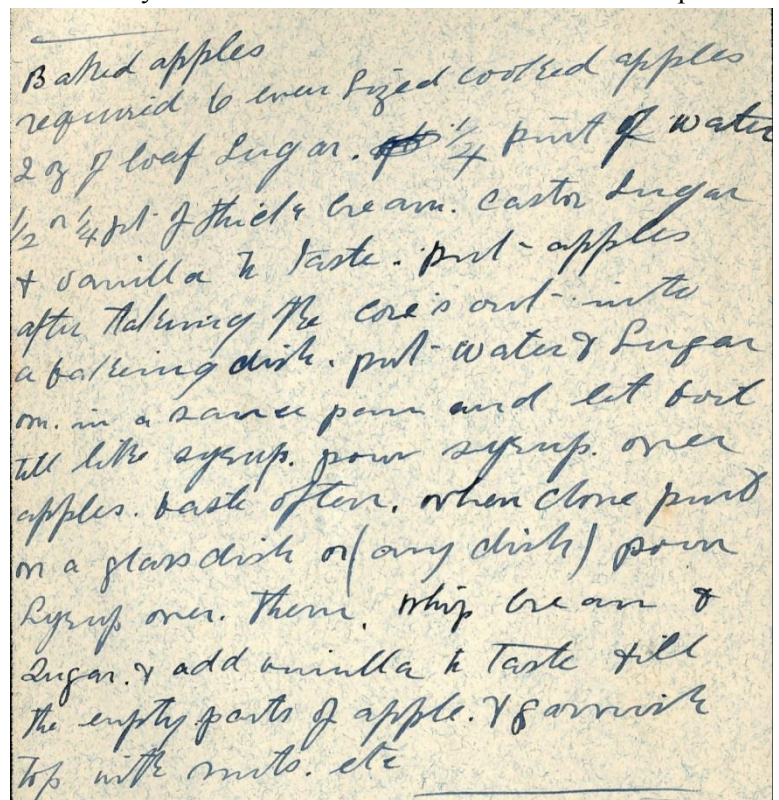 Baked apples
required 6 even sized cooked apples
2 oz of loaf sugar. 1/4 pint of water
1/2 or 1/4 pt of thick cream. castor sugar
& vanilla to taste. put apples
after taking the core's out into
a bakeing dish. put water & sugar
on. in a sauce pan and let boil
till like syrup. pour syrup. over
apples. baste often. when done put
on a glass dish or (any dish) pour
syrup over. them. whip cream &
sugar. & add vanilla to taste fill
the empty parts of apple. & garnish
top with nuts. etc